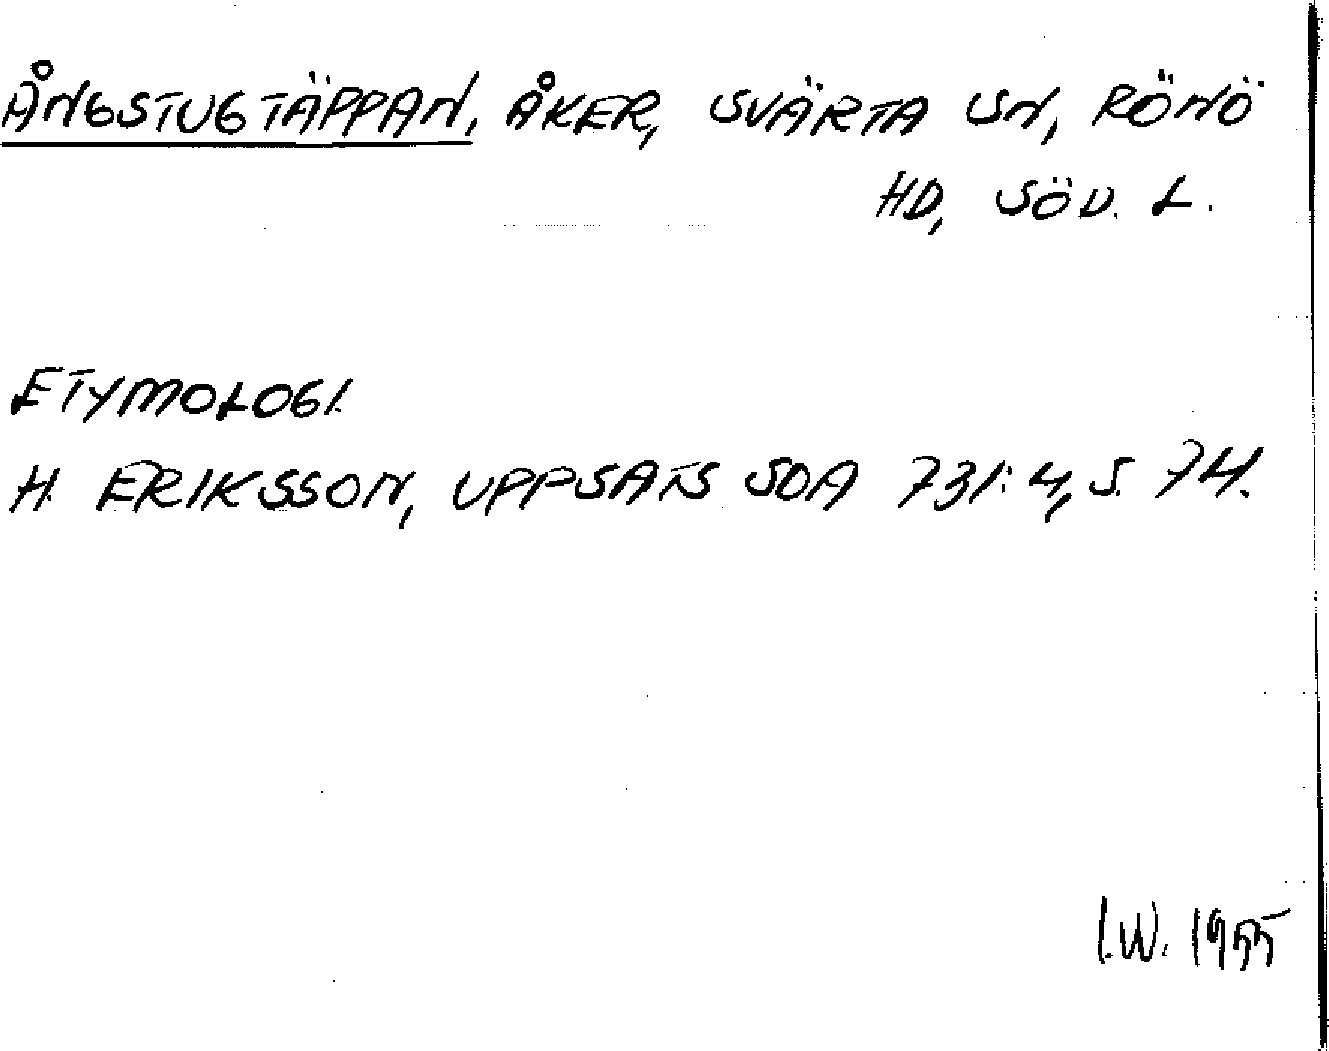 ÅNGSTUGTÄPPAN, ÅKER, SVÄRTA SN, RÖNÖ
HD, SÖD. L.
ETYMOLOGI.
H. ERIKSSON, UPPSATS SOA 731:4, S. 74.
I.W. 1955